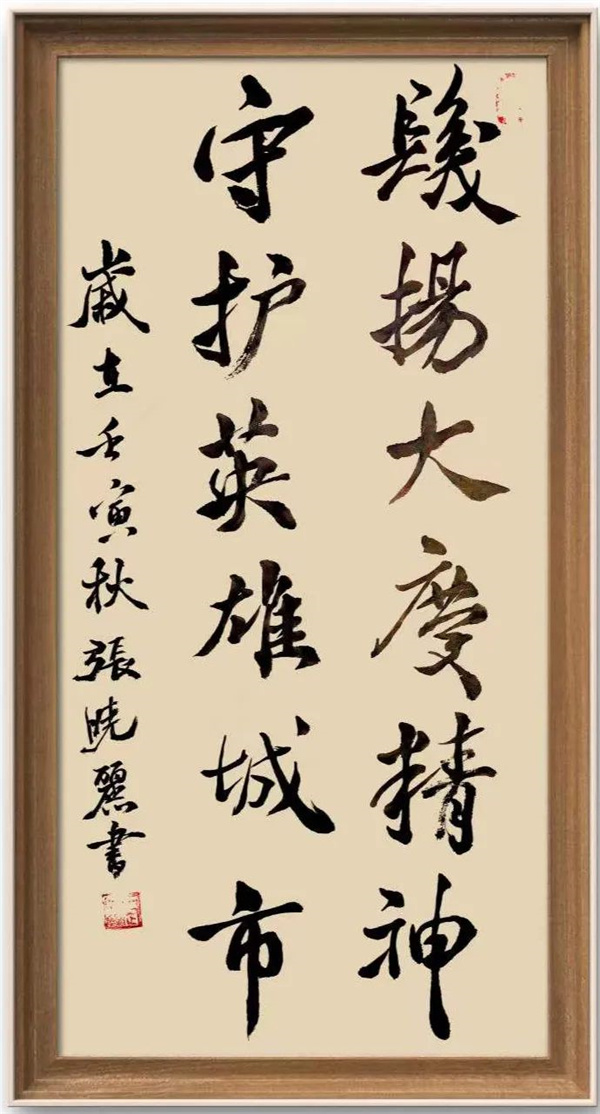 髮揚大慶精神
守护英雄城市
歲在壬寅秋張晓麗書